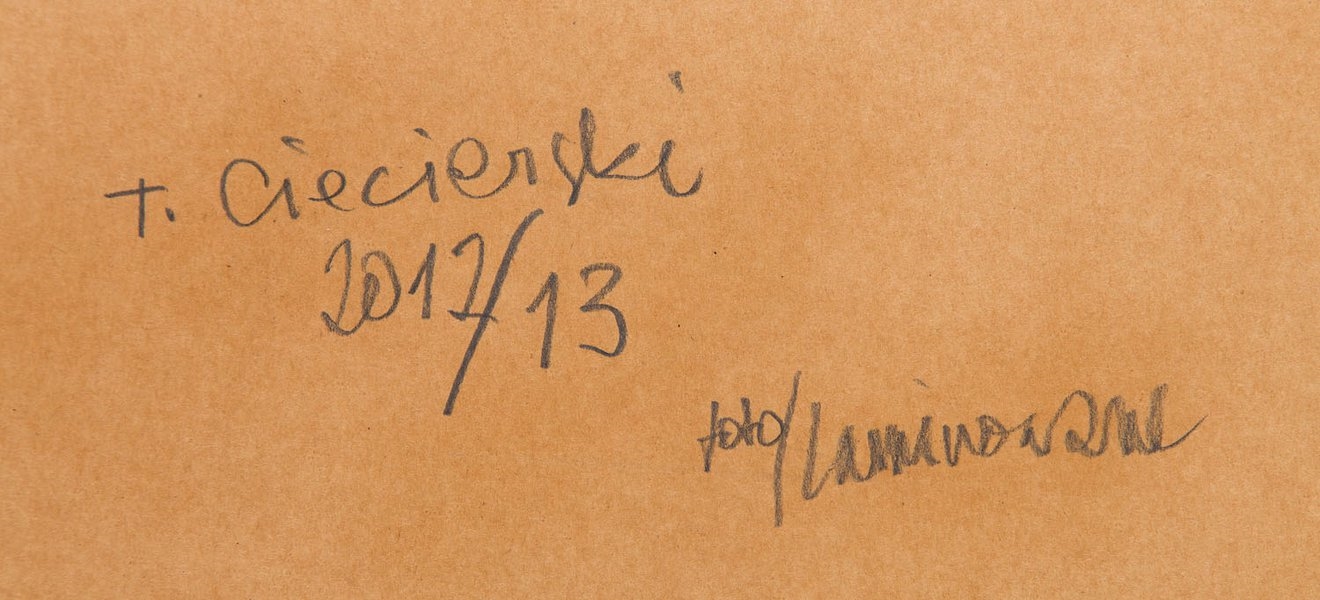 T. Ciecierski
2012/13
foto/Laminowane